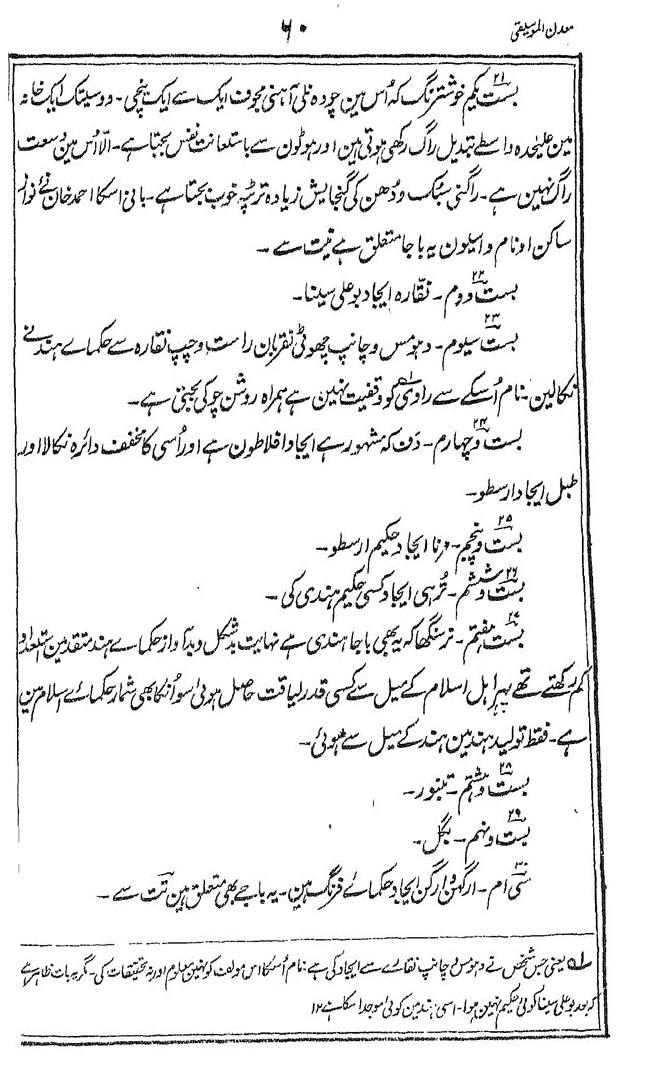 معدن الموسیقی
۶۰
۲۱ بست یکم خوشترنگ کہ اُس مین چودہ نلی آہنی مجوف ایک سے ایک پنچی۔ و وسیتک ایک خانہ
مین علیحدہ واسطے تبدیل راگ رکھی ہوتی ہین اور ہوٹون سے باستعانت نفس بجتا ہے۔ الّا اُس مین وسعت
راگ نہین ہے۔ راگنی سبک و دُھن کی گنجایش زیادہ ترٹپہ خوب بجتا ہے۔ بانی اسکا احمد خان نَے نواز
ساکن اونام و اسیلون یہ باجا متعلق ہے تیت سے۔
۲۲ بست و دوم۔ نقّارہ ایجاد بو علی سینا۔
۲۳ بست سیوم۔ دہوس و چانپ چھوٹی نقریان راست و چپ نقارہ سے حکماے ہند نے
نکالین۔ نام اُسکے سے راوی کو وقفیت نہین ہے ہمراہ روشن چوکی بجتی ہے۔
۲۴ بست و چہارم۔ دَف کہ مشہور ہے ایجاد افلاطون ہے اور اُسی کا مخفف دائرہ نکالا اور
طبل ایجاد ارسطو۔
۲۵ بست و پنجم۔ قرنا ایجاد حکیم ارسطو۔
۲۶ بست و ششم۔ تُرہی ایجاد کسی حکیم ہندی کی۔
۲۷ بست ہفتم۔ نرسنگھا کہ یہ بھی باجا ہندی ہے نہایت بد شکل و بد آواز حکماے ہند متقدمین استعداد
کم رکھتے تھے پہر اہل اسلام کے میل سے کسی قدر لیاقت حاصل ہوئی سو اُنکا بھی شمار حکمائے اسلام مین
ہے۔ فقط تولید ہند مین ہند کے میل سے ہوئی۔
۲۸ بست و ہشتم۔ تنبور۔
۲۹ بست و نہم۔ بگل۔
۳۰ سی ام۔ ارگہن و ارگن ایجاد حکمائے فرنگ ہین۔ یہ باجے بھی متعلق ہین تت سے۔
لہ یعنی جس شخص نے دہوس و چانپ نقارے سے ایجاد کی ہے نام اُسکا اس مولف کو نہین معلوم اور نہ تحقیقات کی۔ مگر یہ بات ظاہر ہے
کہ بعد بو علی سینا کوئی حکیم نہین ہوا۔ اسی ہند مین کوئی موجد اسکا ہے ۱۲